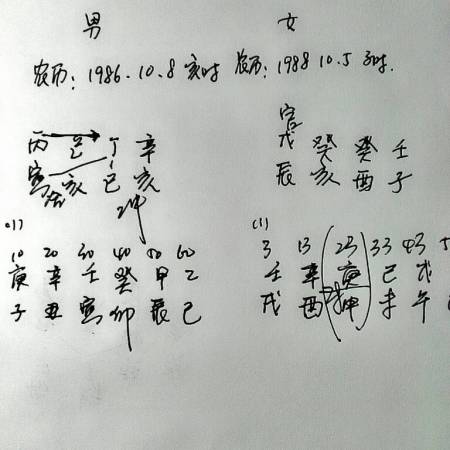 男 女
农历：1986.10.8 亥时 农历：1988 10.5 子时.
丙 己 丁 辛
寅 亥 巳 亥
冲
戊 癸 癸 壬
辰 亥 酉 子
(1)
10 20 30 40 50 60
庚 辛 壬 癸 甲 乙
子 丑 寅 卯 辰 巳
(1)
3 13 23 33 43 5
壬 辛 庚 己 戊
戌 酉 申 未 午